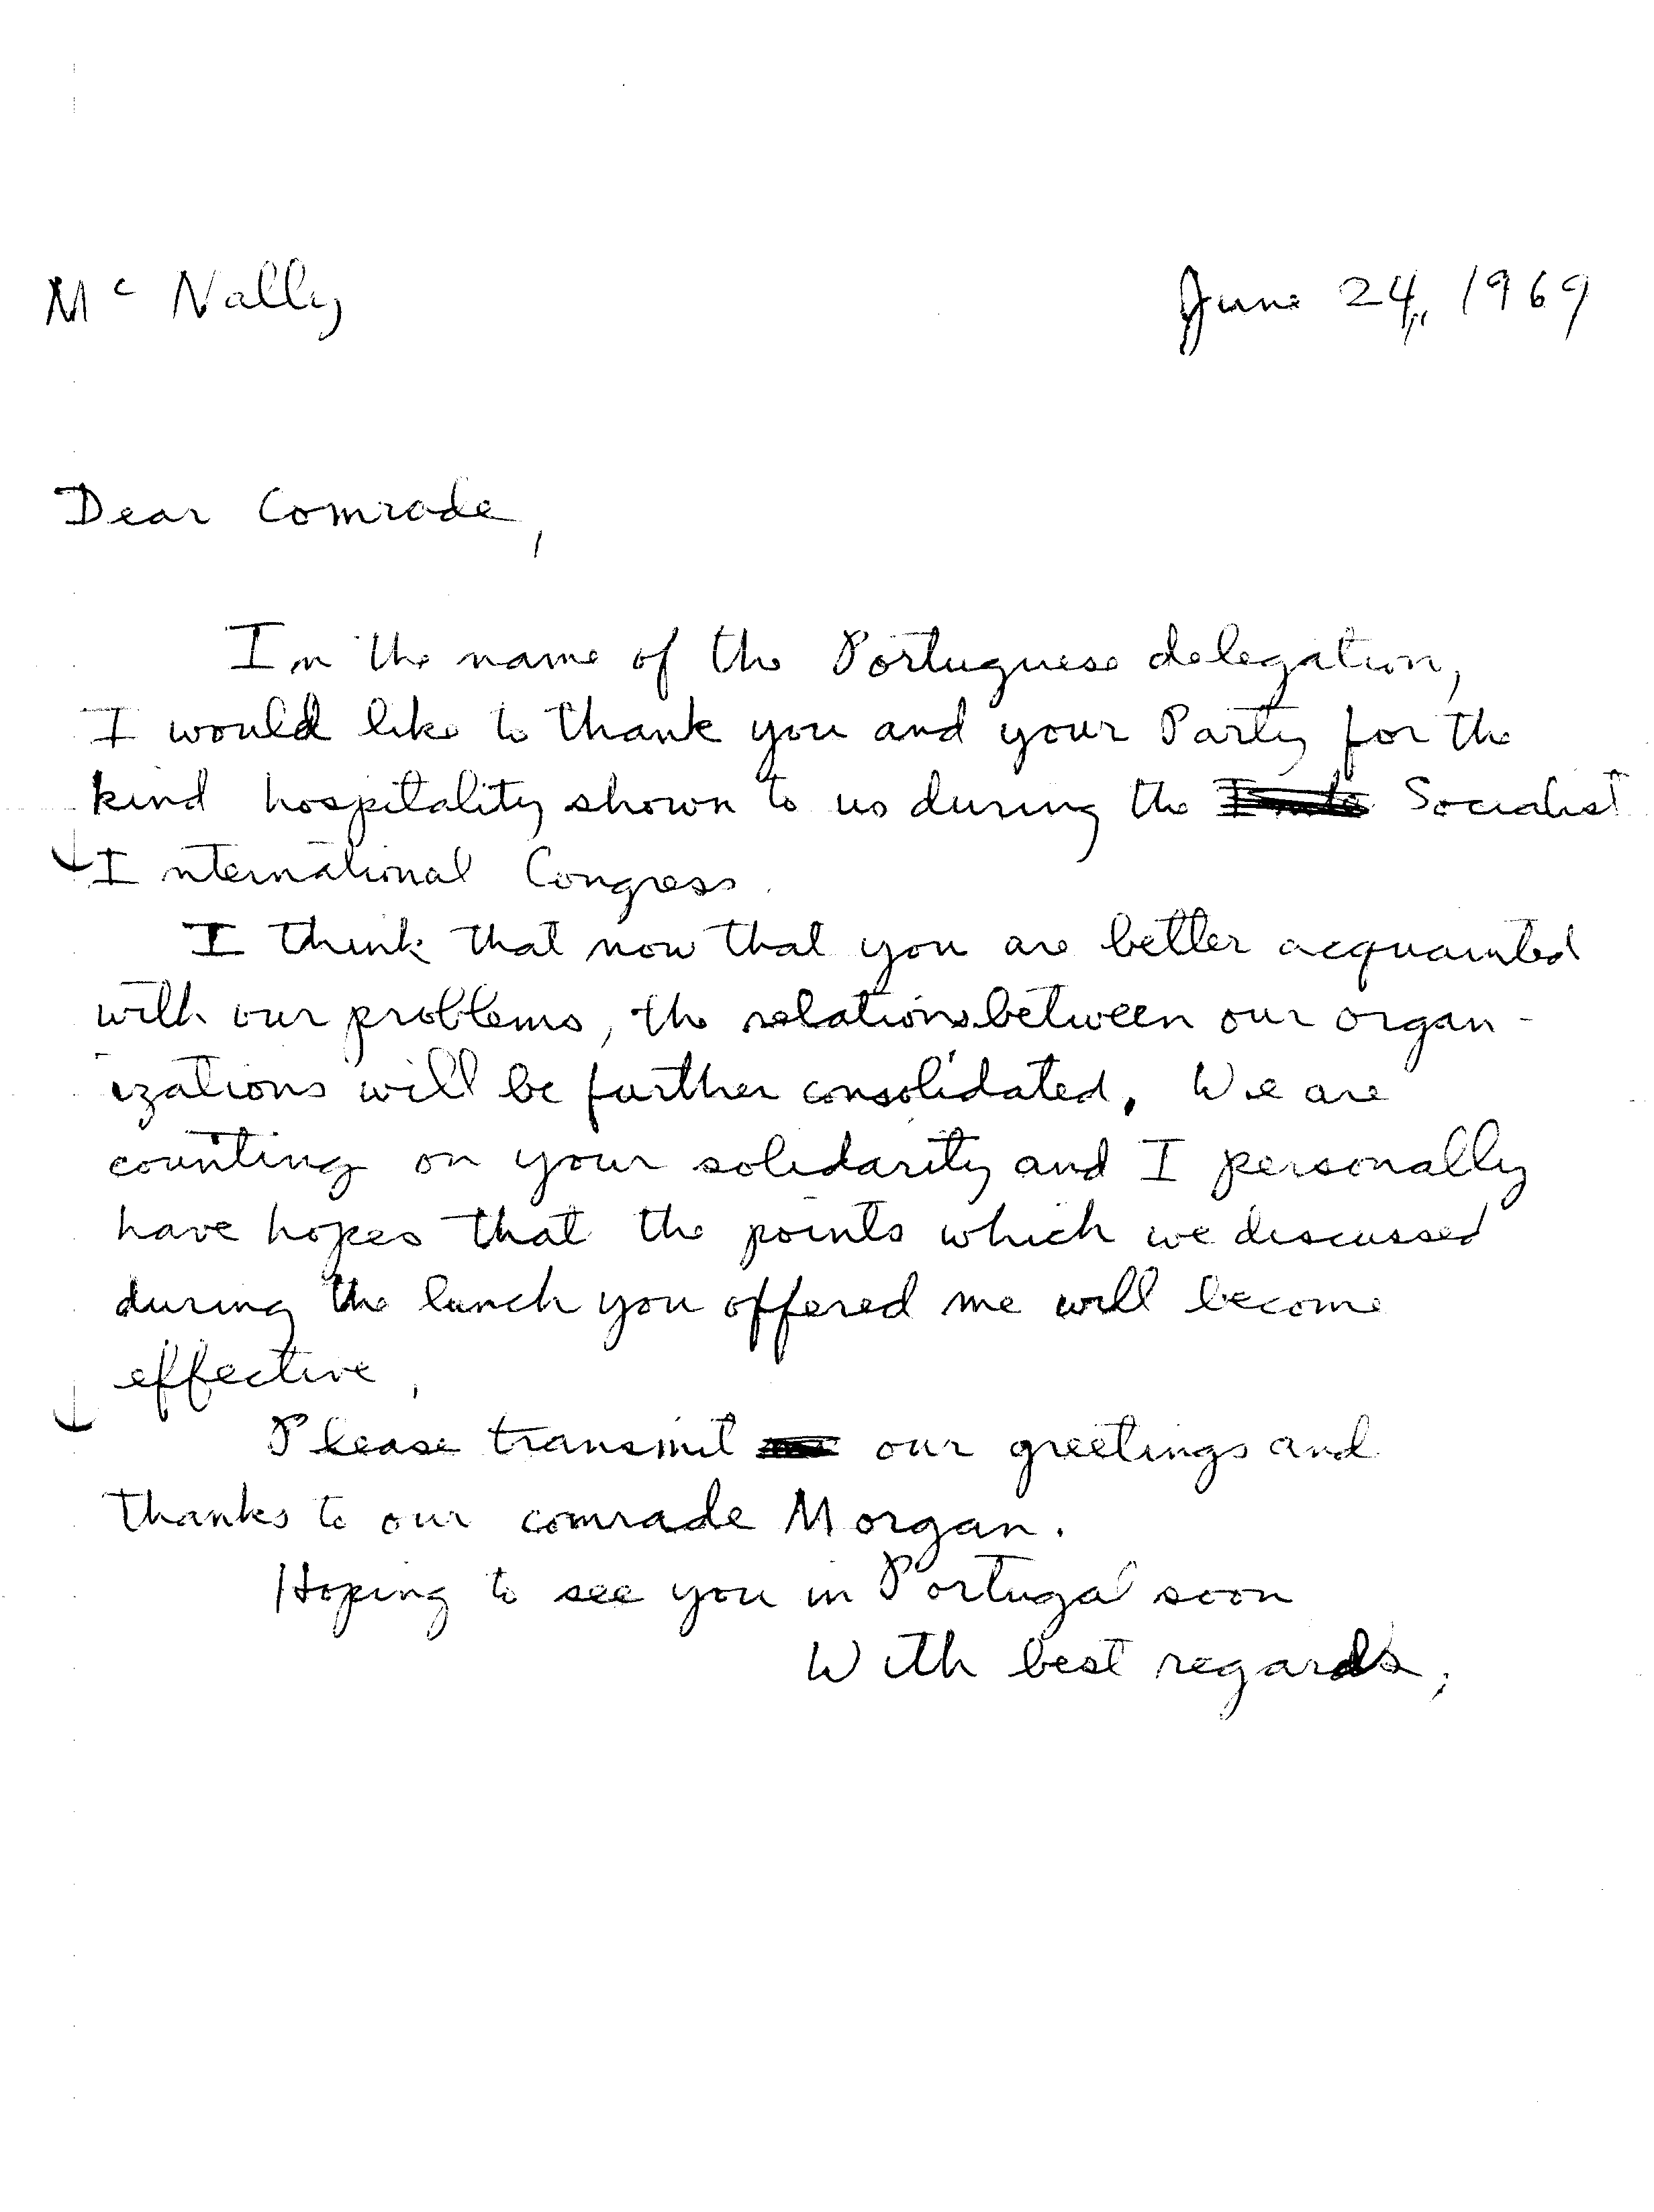 Mc Nally June 24, 1969
Dear Comrade,
In the name of the Portuguese delegation,
I would like to thank you and your Party for the
kind hospitality shown to us during the Socialist
International Congress.
I think that now that you are better acquainted
with our problems, the relations between our organ-
izations will be further consolidated. We are
counting on your solidarity and I personally
have hopes that the points which we discussed
during the lunch you offered me will become
effective.
Please transmit our greetings and
thanks to our comrade Morgan.
Hoping to see you in Portugal soon
With best regards,